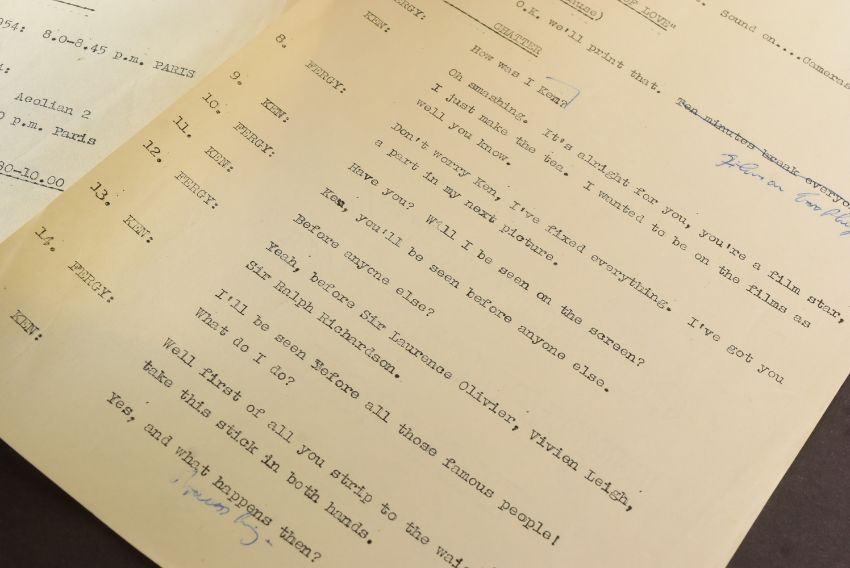 954: 8.0-8.45 p.m. PARIS
4:
Aeolian 2
0 p.m. Paris
30-10.00
Sound on....Cameras
OF LOVE"
O.K. we'll print that. Ten minutes break everyo
CHATTER
ERGY: How was I Ken?
KEN: Oh smashing. It's alright for you, you're a film star,
I just make the tea. I wanted to be on the films as
well you know.
8. FERGY: Don't worry Ken, I've fixed everything. I've got you
a part in my next picture.
9. KEN: Have you? Will I be seen on the screen?
10. FERGY: Ken, you'll be seen before anyone else.
11. KEN: Before anyone else?
12. FERGY: Yeah, before Sir Laurence Olivier, Vivien Leigh,
Sir Ralph Richardson.
13. KEN: I'll be seen Before all those famous people!
What do I do?
14. FERGY: Well first of all you strip to the wai
take this stick in both hands.
KEN: Yes, and what happens then?